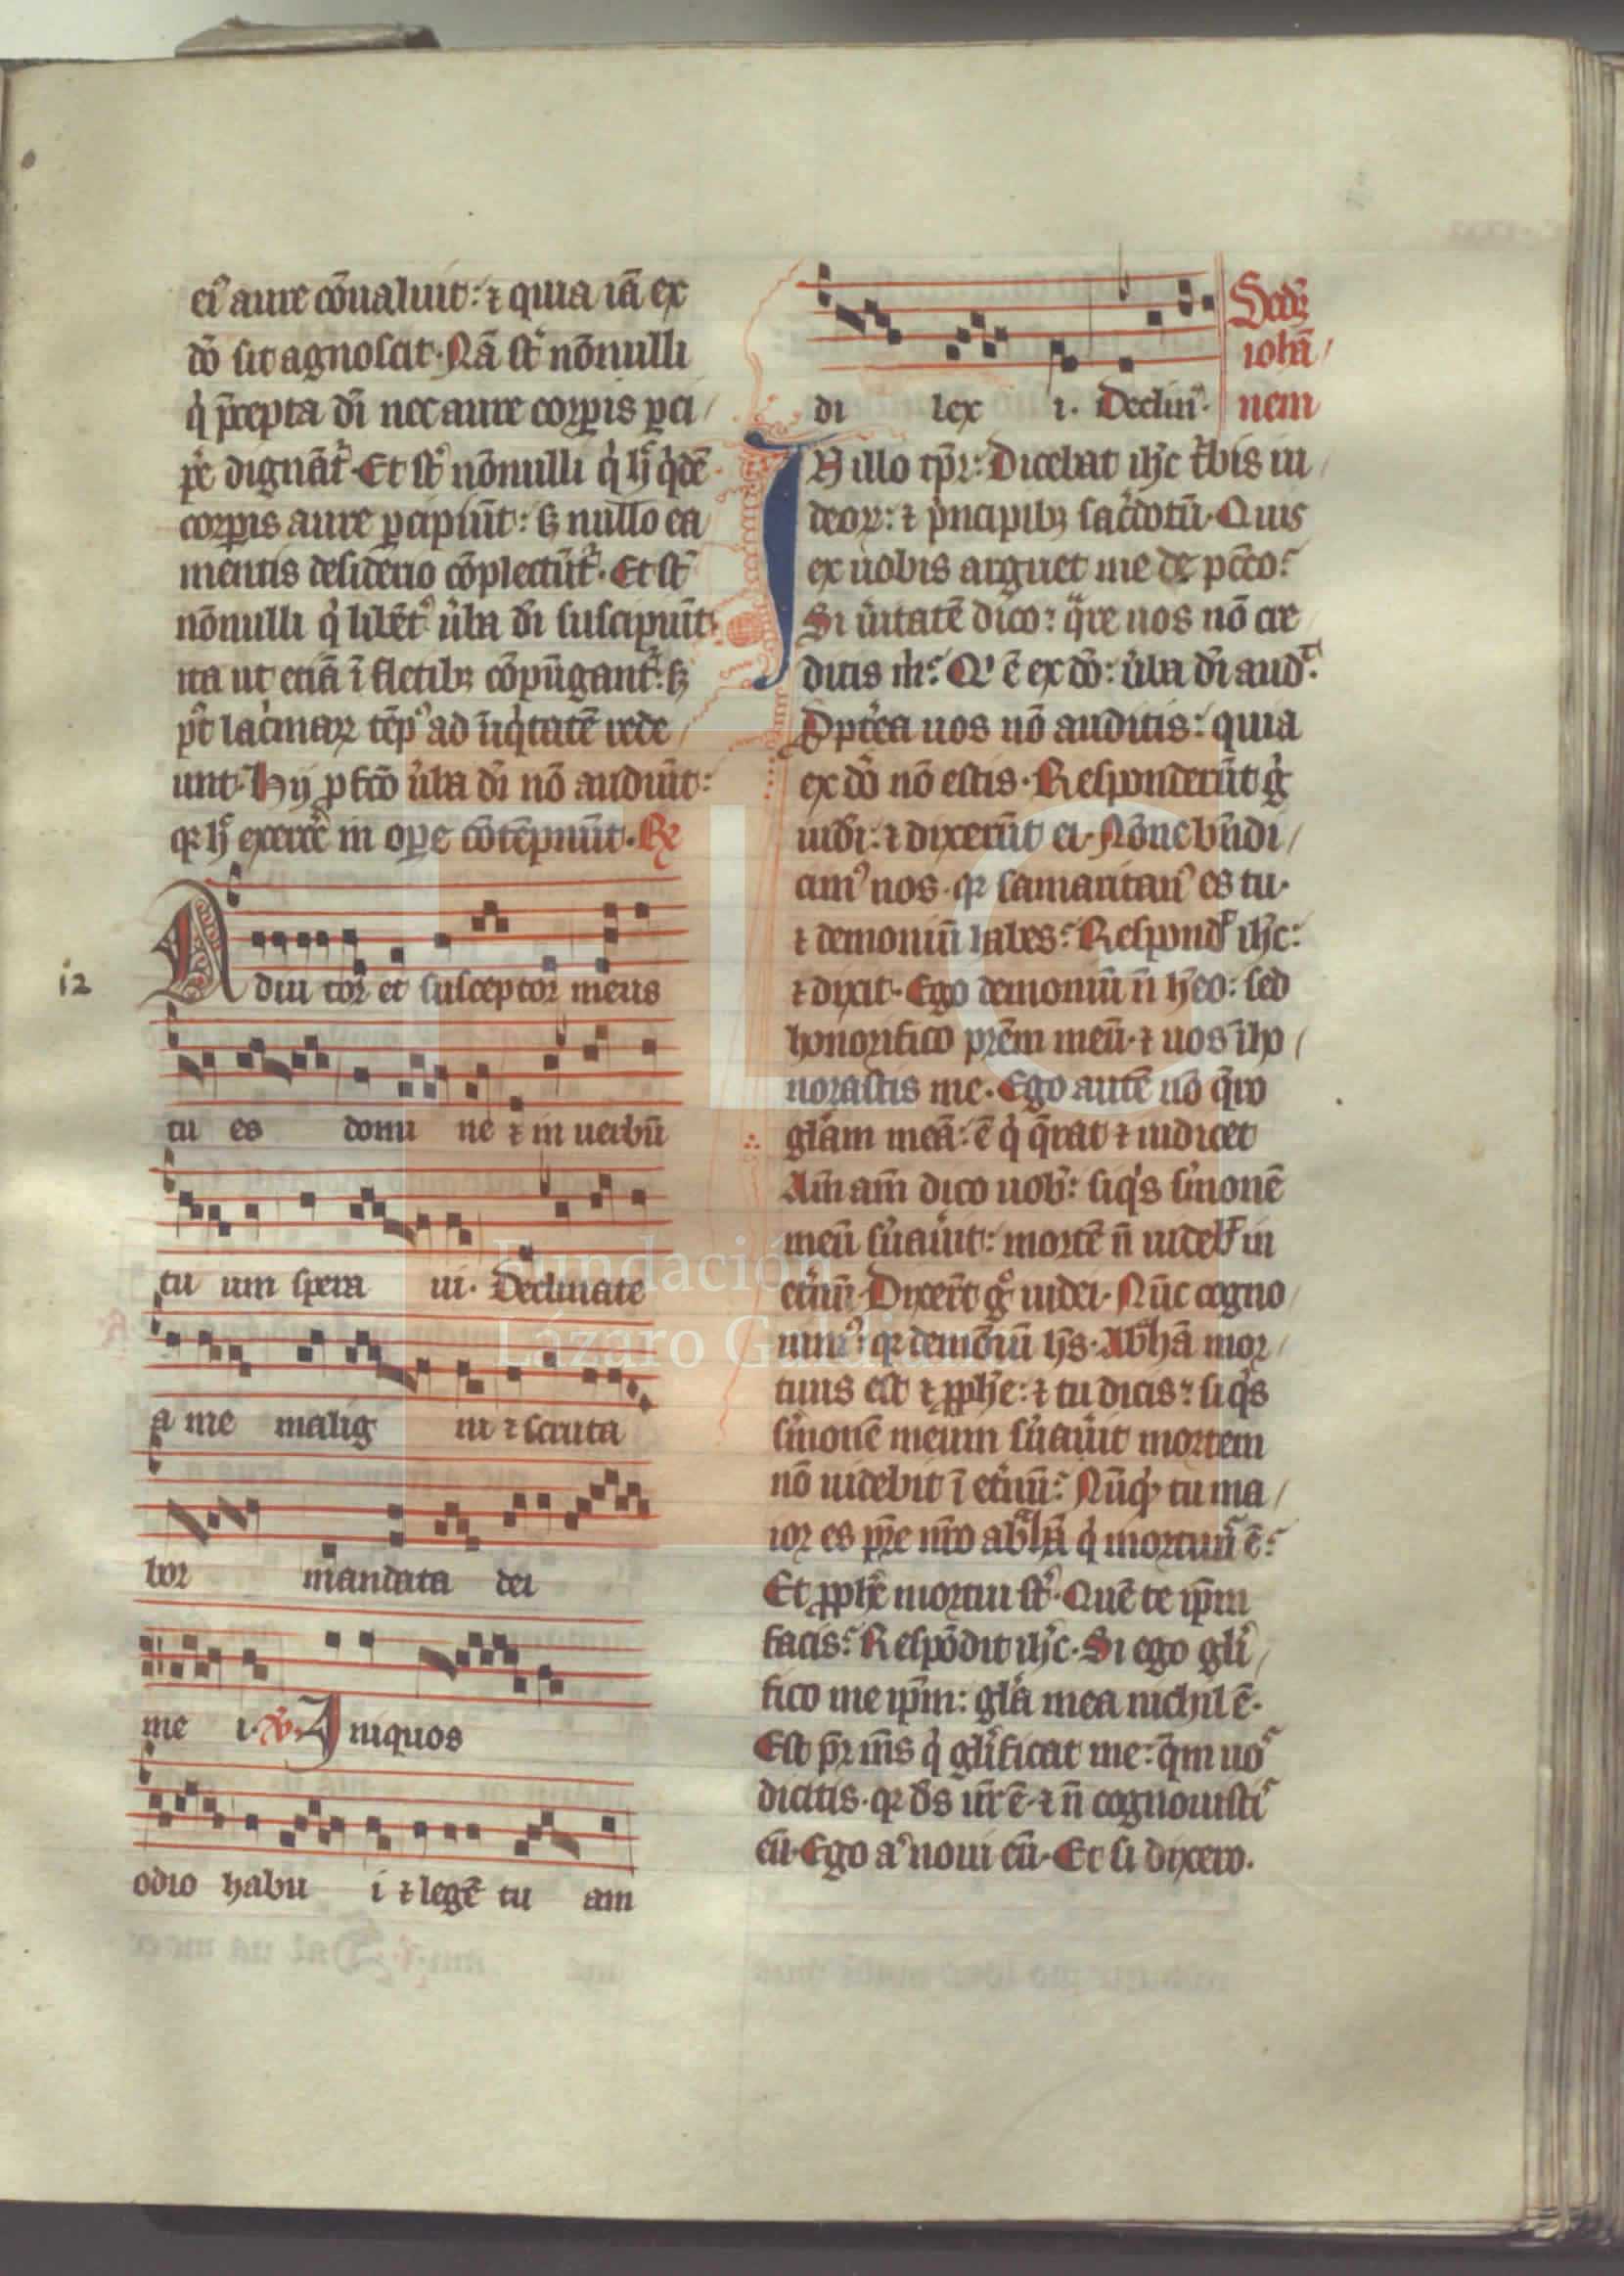 ei᷒ aure cōualuit: ⁊ quia iā ex
dō sit agnoscit. Nā st̄ nōnulli
q̇ p̄cepta dī nec aure corꝑis ꝑci/
pe᷒ dignāt᷒. Et st̄ nōnulli q̇ h̄ q̇dē
corꝑis aure ꝑcipiūt: ꝫ nullo ea
mentis desiderio cōplectūt᷒. Et st̄
nōnulli q̇ libēt᷒ u̓ba dī suscipiūt
ita ut etiā ī fletibꝫ cōpūgant᷒: ꝫ
pt̄ lac̓maꝝ tēp᷒ ad īiq̇tatē rede/
unt. Hij ꝓfco̅ u̓ba dī nō audiūt:
qꝛ h̄ exerce᷒ in oꝑe cōtēpniūt. ℞
12
Adiu tor et susceptor meus
tu es domi ne ⁊ in uerbū
tu um spera ui. Declinate
a me malig ni ⁊ scruta
bor mandata dei
me i. ℣. Iniquos
odio habu i ⁊ legē tu am
di lex i. Declin̄.
Scd̄ꝫ
iohā/
nem
In illo tp̄r: Dicebat ih̄c t᷒bis iu/
deoꝝ: ⁊ p̓ncipibꝫ sac̓dotū. Quis
ex uobis arguet me de pc̄co:
Si u̓itatē dico: q̄re uos nō cre
ditis m̓: Q' ē ex dō: u̓ba dī aud᷒.
Ꝓpt̓ea uos nō auditis: quia
ex dō nō estis. Responderūt g̓
iudī: ⁊ dixerūt ei. Nōne bn̄di/
cim᷒ nos. qꝛ samaritan᷒ es tu.
⁊ demoniū habes: Respond᷒ ih̄c:
⁊ dixit. Ego demoniū n̄ h̄eo: sed
honorifico pr̄em meū. ⁊ uos īho/
norastis me. Ego autē nō q̄ro
gl̄am meā: ē q̇ q̄rat ⁊ iudicet
Am̄ am̄ dico uob᷒: siq̇s s̓monē
meū s̓uau̓it: mortē n̄ uideb᷒ in
et̓nū. Dixer̄t g᷒ iudei. Nūc cogno/
uim᷒: qꝛ demōiū hꝫs. Abhā mor/
tuus est ⁊ ꝓphe: ⁊ tu dicis: siq̇s
s̓monē meum s̓uau̓it mortem
nō uidebit ī et̓nū: Nūq̇d tu ma/
ior es pr̄e nr̄o ab̄hā q̇ mortuu᷒ ē:
Et ꝓphe mortui st̄. Quē te ip̄m
facis: Respōdit ih̄c. Si ego gl̄i/
fico me ip̄m: gl̄a mea nichil ē.
Est pr̄ ms̄ q̇ gl̄ificat me: q̄m uo᷒
dicitis. qꝛ ds̄ ur̄ ē. ⁊ n̄ cognouisti᷒
eū. Ego a᷒ noui eū. Et si dixero.
Fundación
Lázaro Galdiano